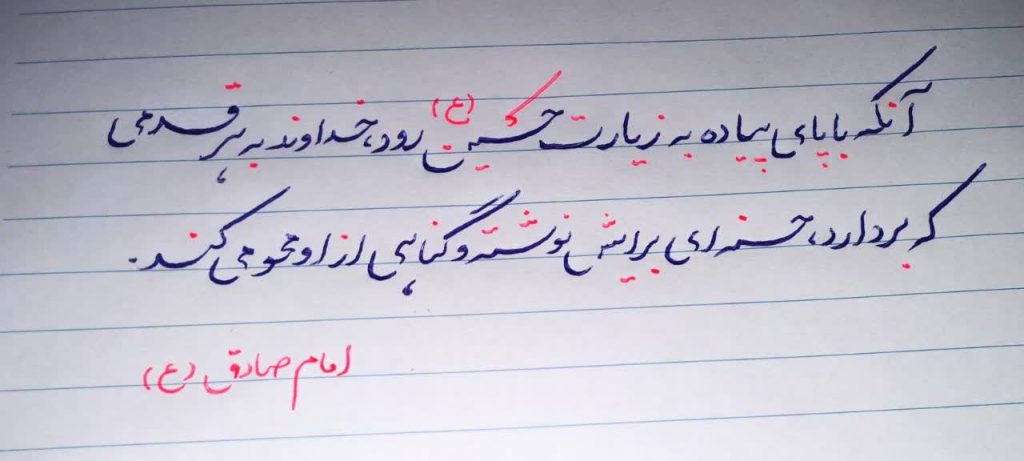 آنکه با پای پیاده به زیارت حسین (ع) رود، خداوند به هر قدمی
که بردارد، حسنه ای برایش نوشته و گناهی از او محو می کند.
امام صادق (ع)